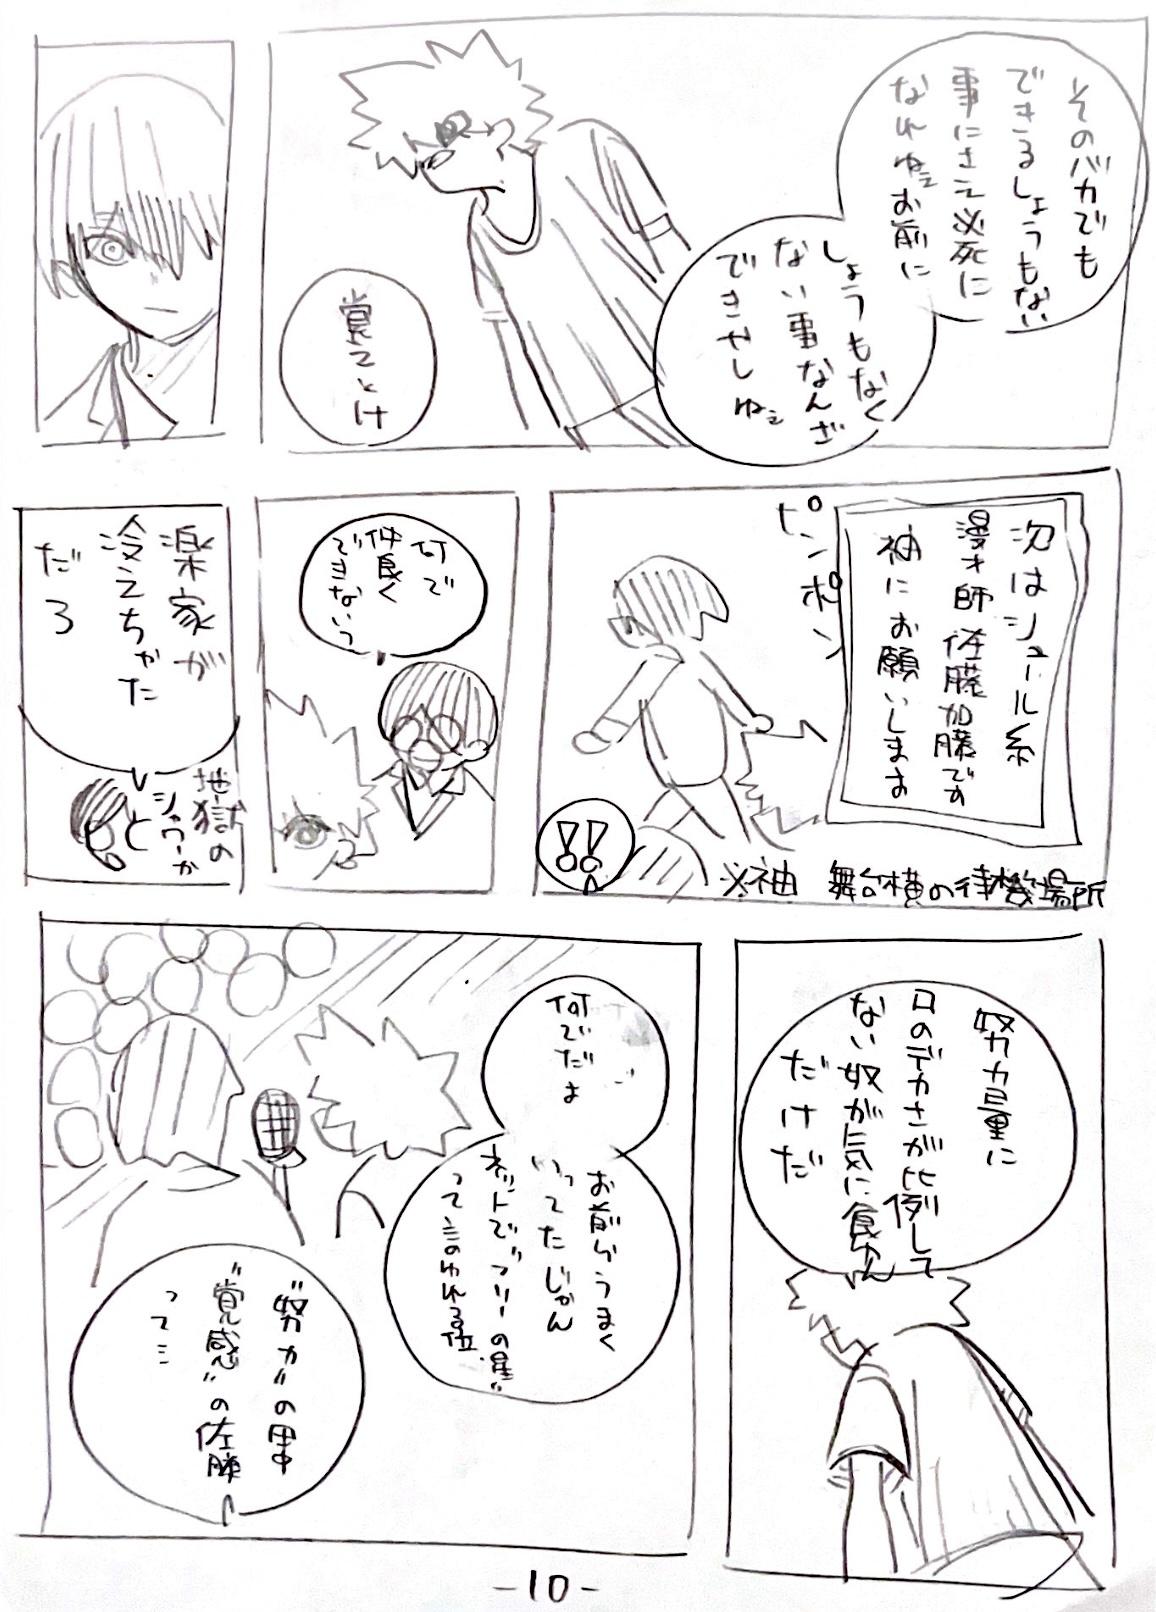 そのバカでも
できるしょうもない
事にさえ必死に
なれねぇお前に
しょうもなく
ない事なんざ
できやしねぇ
覚えとけ
次はシュール系
漫才師 佐藤加藤です
袖にお願いします
ピンポン
!!
※袖 舞台横の待機場所
何で
仲良く
できないっ
楽家が
冷えちゃた
だろ
地獄の
シャワーか
と
努力量に
口のデカさが比例して
ない奴が気に食わん
だけだ
何でだよ
お前らうまく
いってたじゃん
ネットで“フリーの星”
って言われる位
“努力”の田中
“覚感”の佐藤
って
-10-